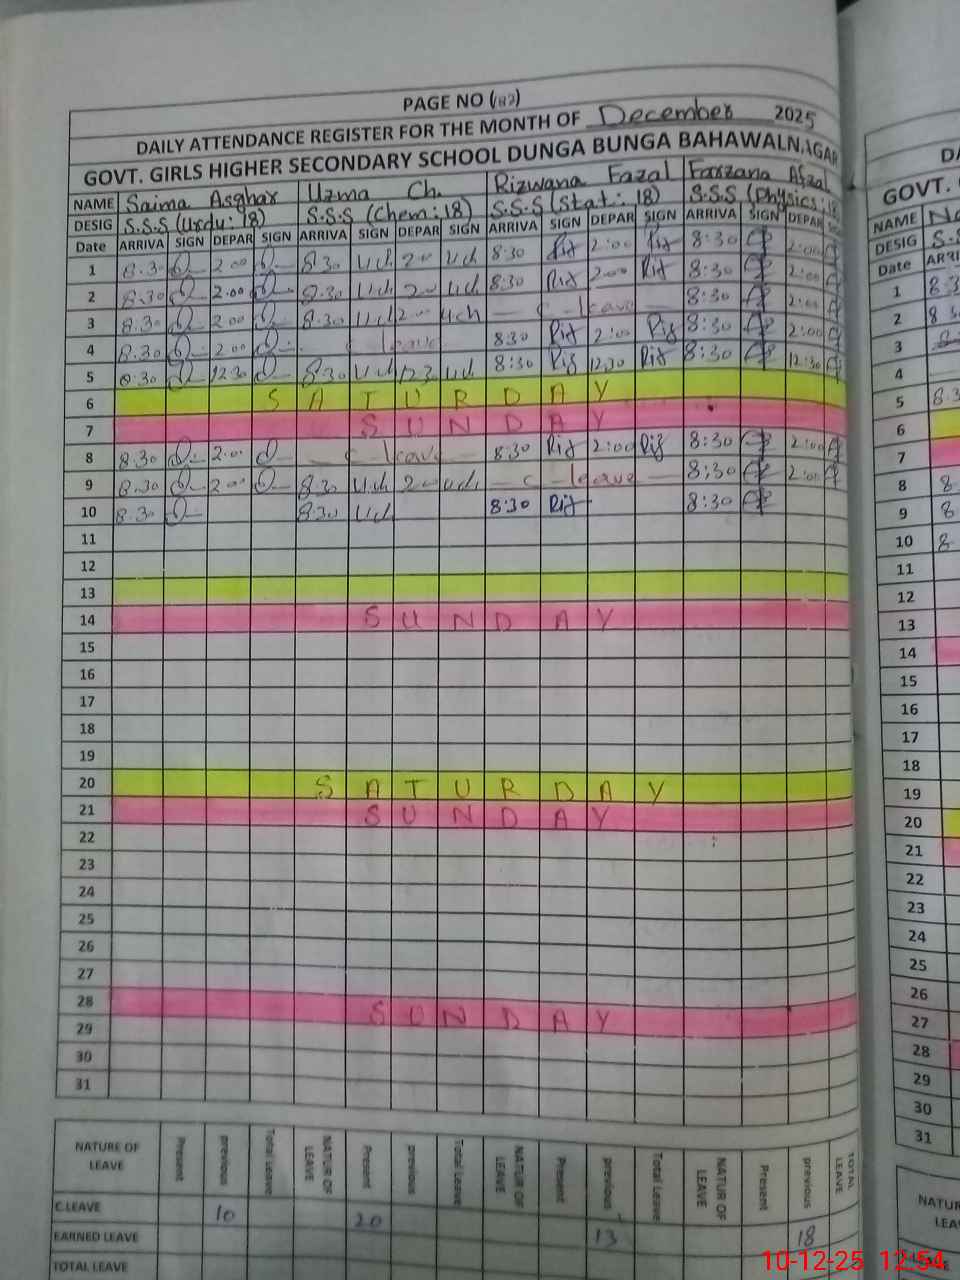 PAGE NO (182)
DAILY ATTENDANCE REGISTER FOR THE MONTH OF December 2025
GOVT. GIRLS HIGHER SECONDARY SCHOOL DUNGA BUNGA BAHAWALNAGAR
NAME Saima Asghar Uzma Ch. Rizwana Fazal Farzana Afzal
DESIG S.S.S (Urdu: 18) S.S.S (Chem: 18) S.S.S (Stat: 18) S.S.S (Physics: 18
Date ARRIVA SIGN DEPAR SIGN ARRIVA SIGN DEPAR SIGN ARRIVA SIGN DEPAR SIGN ARRIVA SIGN DEPAR
1 8.30 2.00 8.30 Uch 200 Uch 8:30 Rif 2:00 Rif 8:30 2:00
2 8.30 2.00 8.30 Uch 200 Uch 8:30 Rif 2:00 Rif 8:30 2:00
3 8.30 2.00 8.30 Uch 200 Uch — C leave — 8:30 2:00
4 8.30 2.00 C leave 8:30 Rif 2:00 Rif 8:30 2:00
5 8.30 12.30 8.30 Uch 12.30 Uch 8:30 Rif 12:30 Rif 8:30 12:30
6 SATURDAY
7 SUNDAY
8 8.30 2.00 — C leave — 8:30 Rif 2:00 Rif 8:30 2:00
9 8.30 2.00 8.30 Uch 200 Uch — C - leave — 8:30 2:00
10 8.30 8.30 Uch 8:30 Rif 8:30
11
12
13
14 SUNDAY
15
16
17
18
19
20 SATURDAY
21 SUNDAY
22
23
24
25
26
27
28 SUNDAY
29
30
31
NATURE OF LEAVE Present previous Total Leave NATUR OF LEAVE Present previous Total Leave NATUR OF LEAVE Present previous Total Leave NATUR OF LEAVE Present previous TOTAL LEAVE
C.LEAVE 10 20 13 18
EARNED LEAVE
TOTAL LEAVE
GOVT.
NAME
DESIG S.S
Date
1 8:3
2
3
4
5 8.3
6
7
8 8
9 8
10 8
11
12
13
14
15
16
17
18
19
20
21
22
23
24
25
26
27
28
29
30
31
NATUR
LEA
10-12-25 12:54